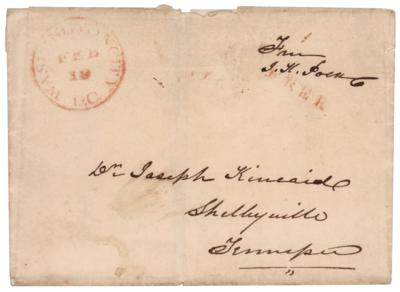 WASHINGTON CITY D.C.
FEB
19
Free
J. K. Polk
FREE
Dr Joseph Kincaid
Shelbyville
Tennessee
"